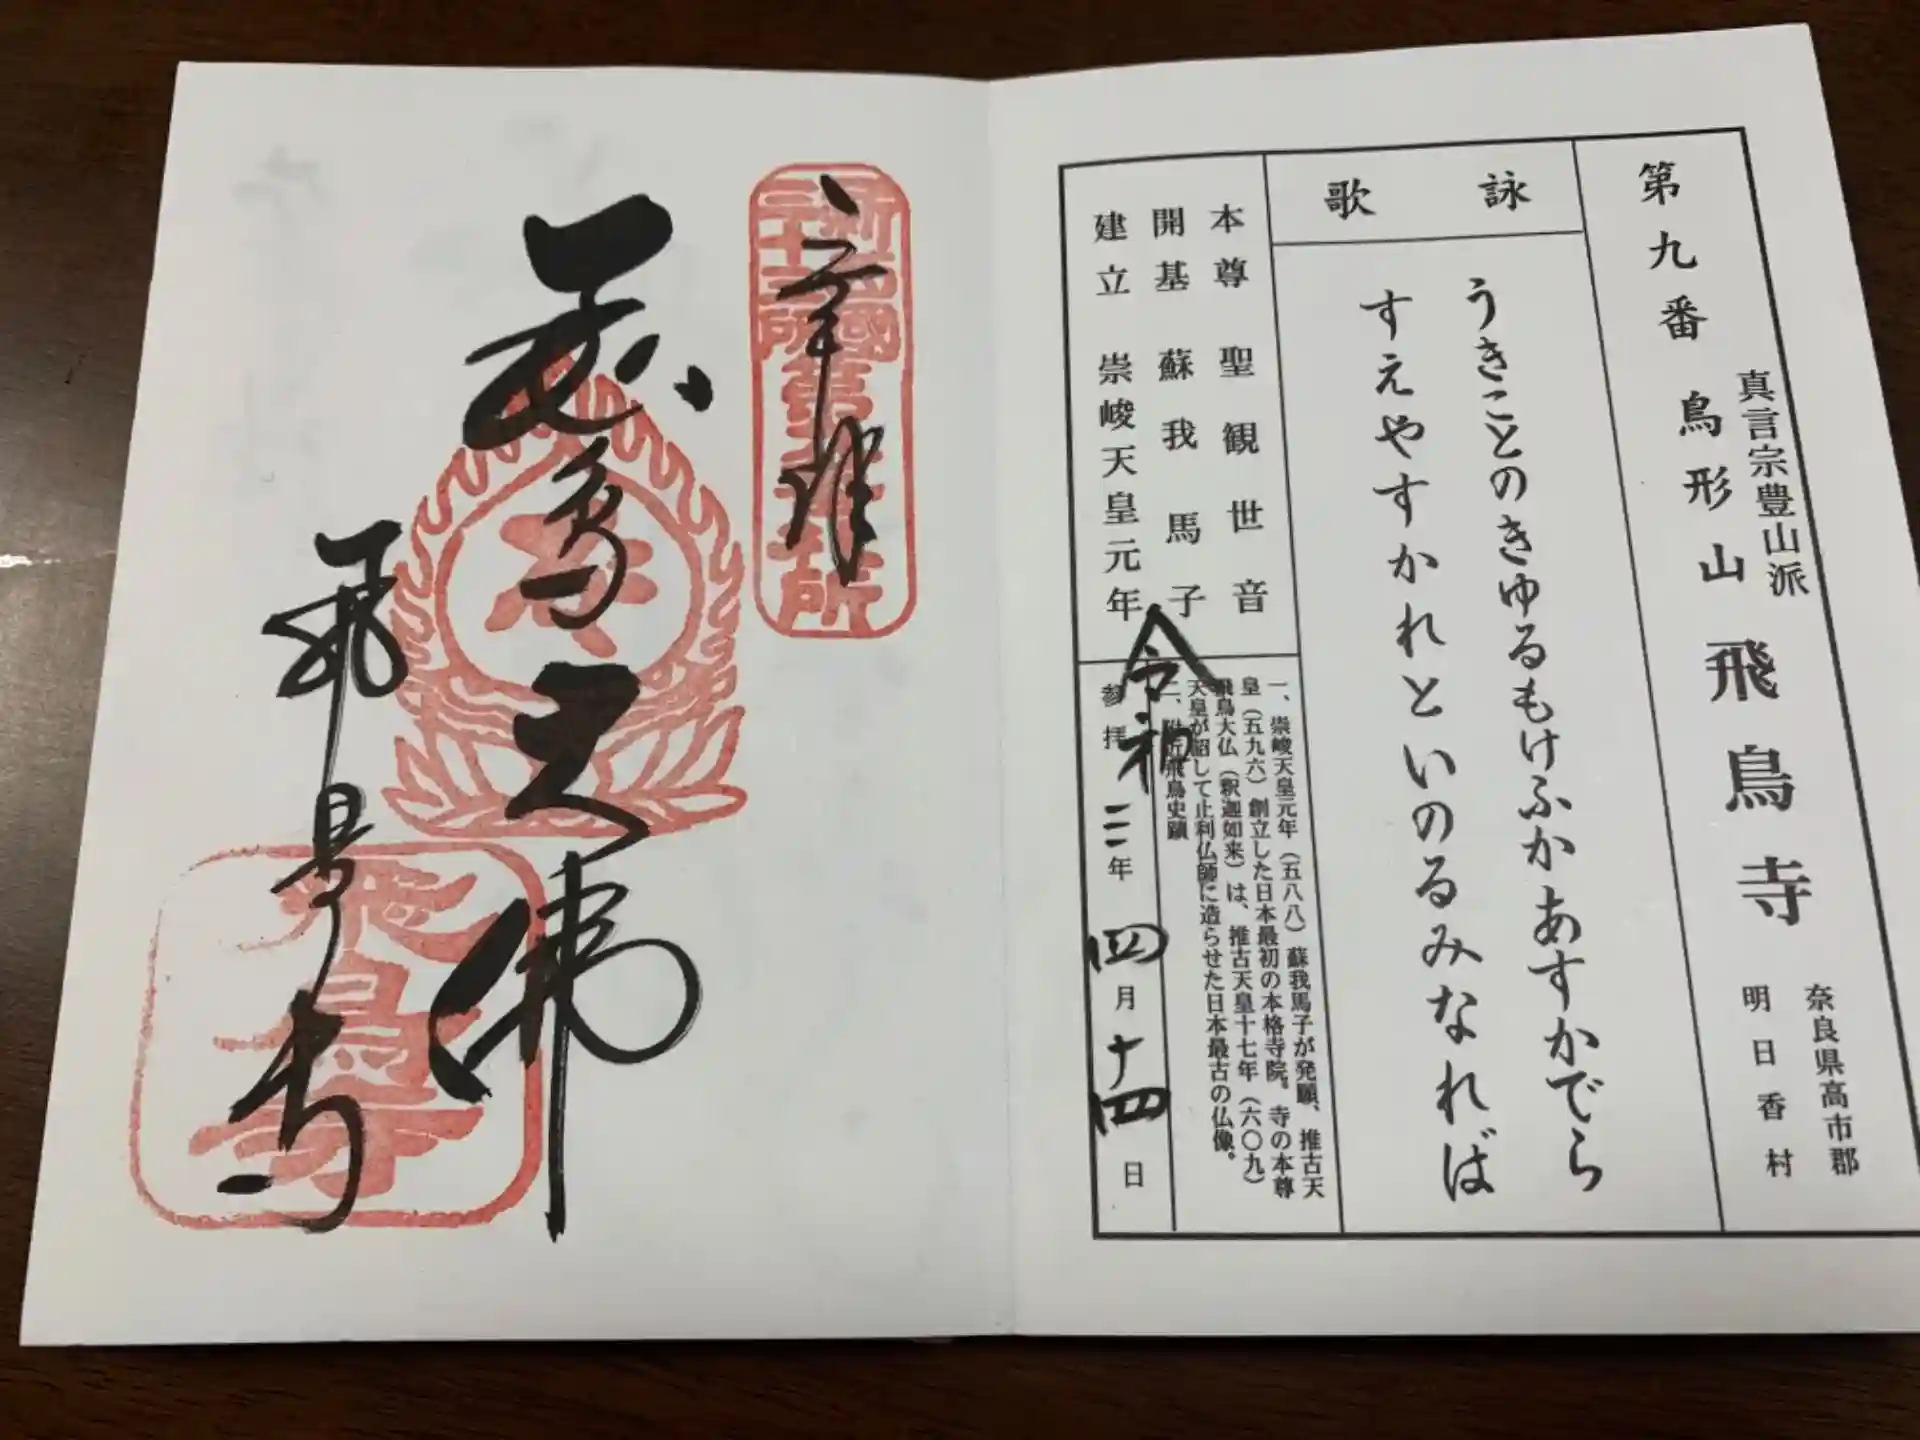 第九番 鳥形山 飛鳥寺
真言宗豊山派
奈良県高市郡
明日香村
詠歌
うきことのきゆるもけふかあすかでら
すえやすすかれといのるみなれば
本尊 聖観世音
開基 蘇我馬子
建立 崇峻天皇元年
一、崇峻天皇元年(五八八)蘇我馬子が発願、推古天
皇(五九六)創立した日本最初の本格寺院。寺の本尊
飛鳥大仏(釈迦如来)は、推古天皇十七年(六〇九)
天皇が詔して止利仏師に造らせた日本最古の仏像。
二、附近飛鳥史蹟
参拝 令和三年四月十四日
奉拝
新西國第九番霊所
飛鳥大佛
飛鳥寺
飛鳥寺